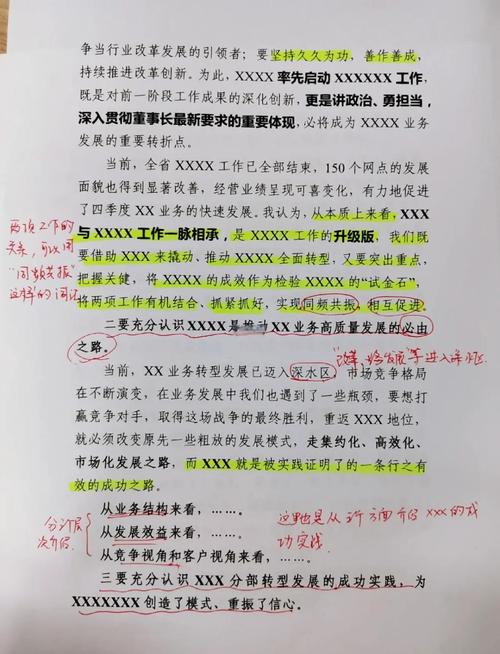 争当行业改革发展的引领者；要坚持久久为功，善作善成，
持续推进改革创新。为此，XXXX 率先启动 XXXXXX 工作，
既是对前一阶段工作成果的深化创新，更是讲政治、勇担当，
深入贯彻董事长最新要求的重要体现，必将成为 XXXX 业务
发展的重要转折点。
当前，全省 XXXX 工作已全部结束，150 个网点的发展
面貌也得到显著改善，经营业绩呈现可喜变化，有力地促进
了四季度 XX 业务的快速发展。我认为，从本质上来看，XXX
与 XXXX 工作一脉相承，是 XXXX 工作的升级版，我们既
要借助 XXX 来撬动、推动 XXXX 全面转型，又要突出重点，
把握关健，将 XXXX 的成效作为检验 XXXX 的“试金石”，
将两项工作有机结合、抓紧抓好，实现同频共振，相互促进。
两项工作的
关系，可以用
“同频共振”
这样的词汇
二要充分认识 XXXX 是推动 XX 业务高质量发展的必由
之路。
等进入深水区
当前，XX 业务转型发展已迈入深水区，市场竞争格局
在不断演变，在业务发展中我们也遇到了一些瓶颈，要想打
赢竞争对手，取得这场战争的最终胜利，重返 XXX 地位，
就必须改变原先一些粗放的发展模式，走集约化、高效化、
市场化发展之路，而 XXX 就是被实践证明了的一条行之有
效的成功之路。
从业务结构来看，……。
从发展效益来看，……。
从竞争视角和客户视角来看，……。
分层
次介绍
这里也是从 方面介绍 XXX 的成
功实践
三要充分认识 XXX 分部转型发展的成功实践，为
XXXXXXX 创造了模式、重振了信心。